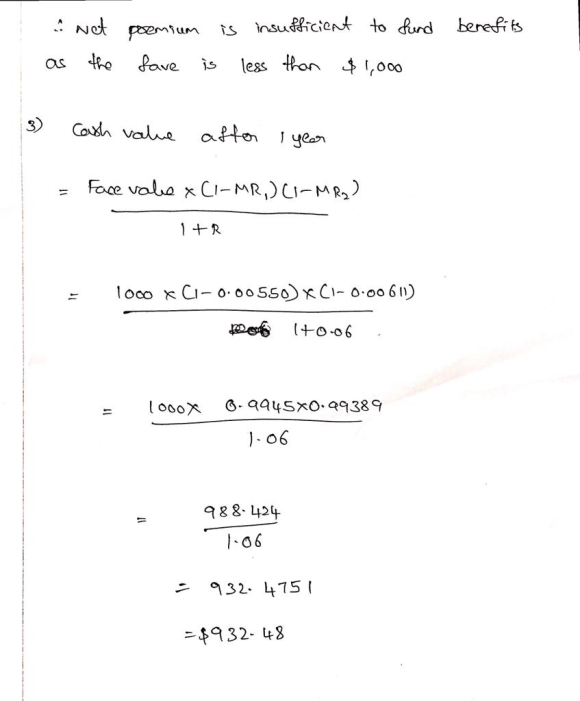 ∴ Net premium is insufficient to fund benefits
as the fave is less than $ 1,000
3) Cash value after 1 year
= Face value × (1-MR₁)(1-MR₂)
1+R
= 1000 × (1-0.00550)×(1-0.00611)
1+0.06
= 1000× 0.9945×0.99389
1.06
= 988.424
1.06
= 932.4751
=$932.48